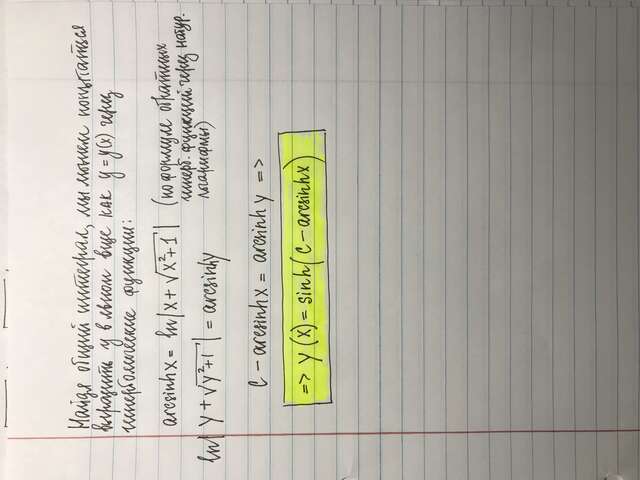 Найдя общий интеграл, мы можем попытаться
выразить y в явном виде как y = y(x) через
гиперболические функции:
arcsinh x = ln|x + √(x²+1)| (по формуле обратных
гиперб. функций через натур.
логарифмы)
ln|y + √(y²+1)| = arcsinh y
C - arcsinh x = arcsinh y =>
=> y(x) = sinh(C - arcsinh x)